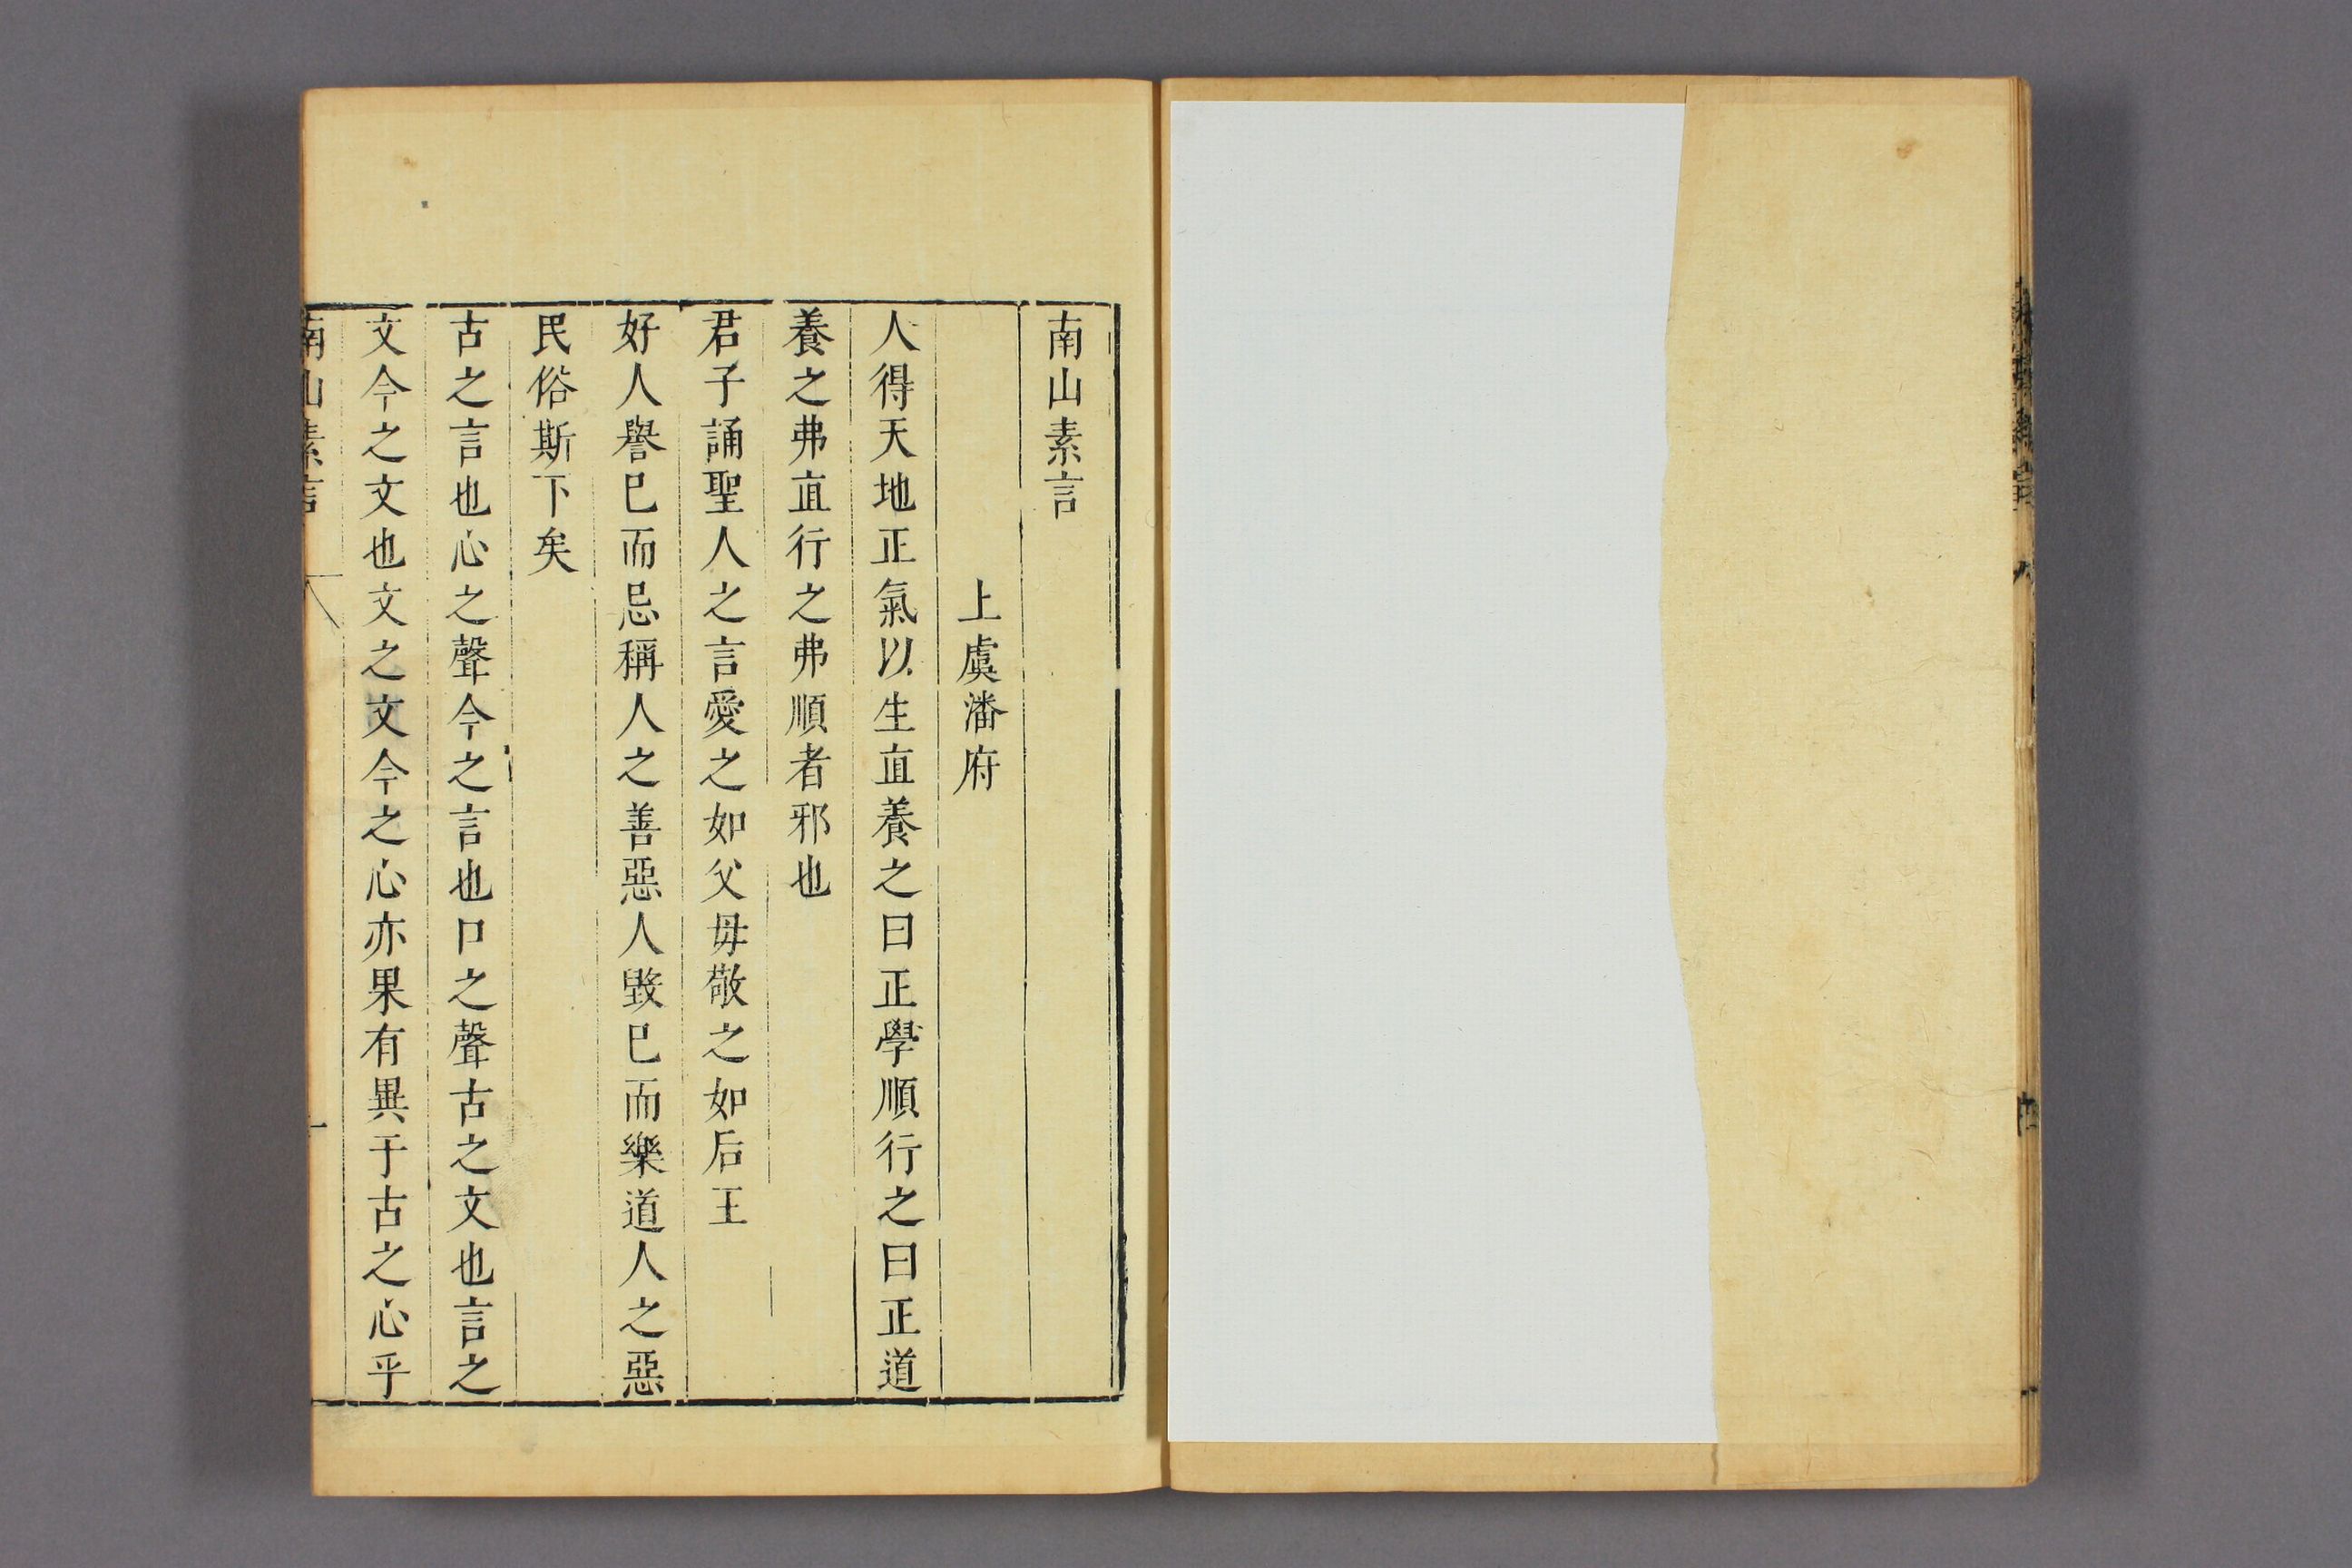 南山素言
上虞潘府
人得天地正氣以生直養之曰正學順行之曰正道
養之弗直行之弗順者邪也
君子誦聖人之言愛之如父母敬之如后王
好人譽已而忌稱人之善惡人毀已而樂道人之惡
民俗斯下矣
古之言也心之聲今之言也口之聲古之文也言之
文今之文也文之文今之心亦果有異于古之心乎
南山素言